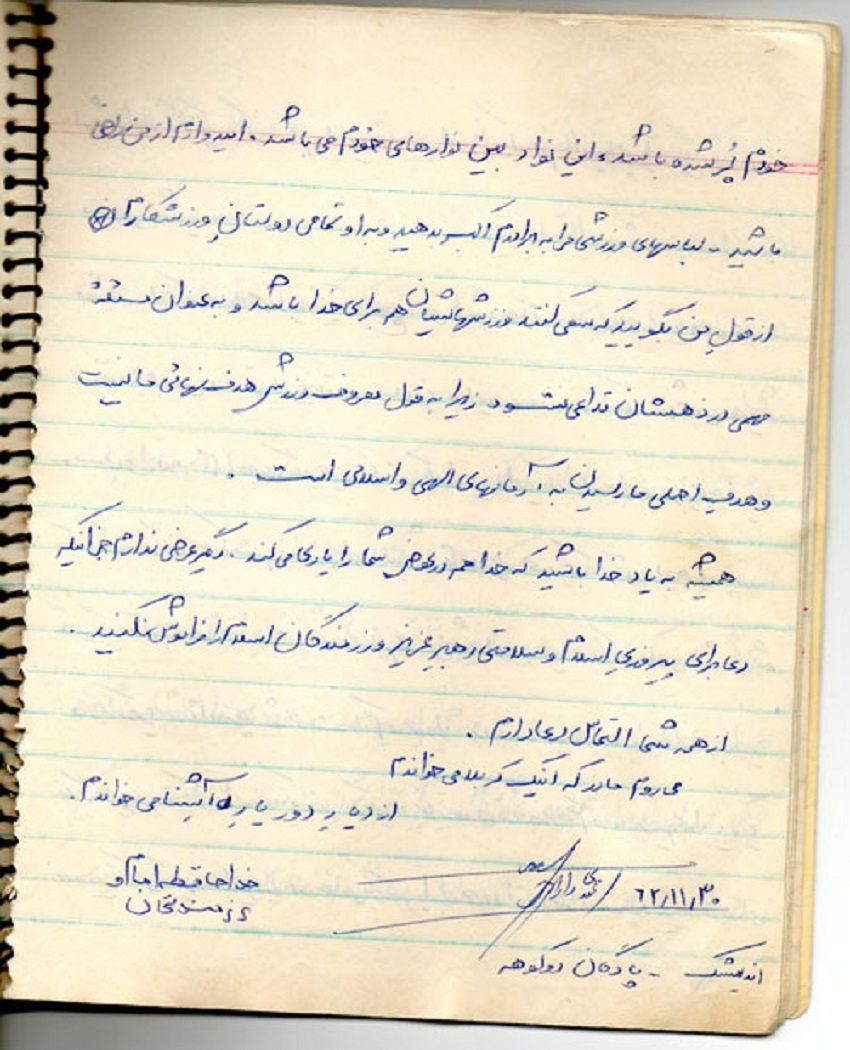 خودم پُر شده باشد، این نوار بین نوارهای خودم می باشد. امیدوارم از من راضی
باشید - لباسهای ورزشی مرا به برادرم اکبر بدهید و به او و تمامی دوستان ورزشکارم
از قول من بگویید که سعی کنند ورزشهایشان هم برای خدا باشد و به عنوان مسئله
مهمی در ذهنشان تداعی نشود زیرا به قول معروف ورزش هدف نهائی ما نیست
و هدف اصلی ما رسیدن به آرمانهای الهی و اسلامی است .
همیشه به یاد خدا باشید که خدا هم در عوض شما را یاری می کند . دیگر عرضی ندارم جز آنکه
دعا برای پیروزی اسلام و سلامتی رهبر عزیز و رزمندگان اسلام را فراموش نکنید .
از همه شما التماس دعا دارم .
می روم مادر که اینک کربلا می خواندم
از دیار دور یار آشنا می خواندم .
خداحافظ
۶۲/۱۱/۳۰
اندیمشک - پادگان دوکوهه